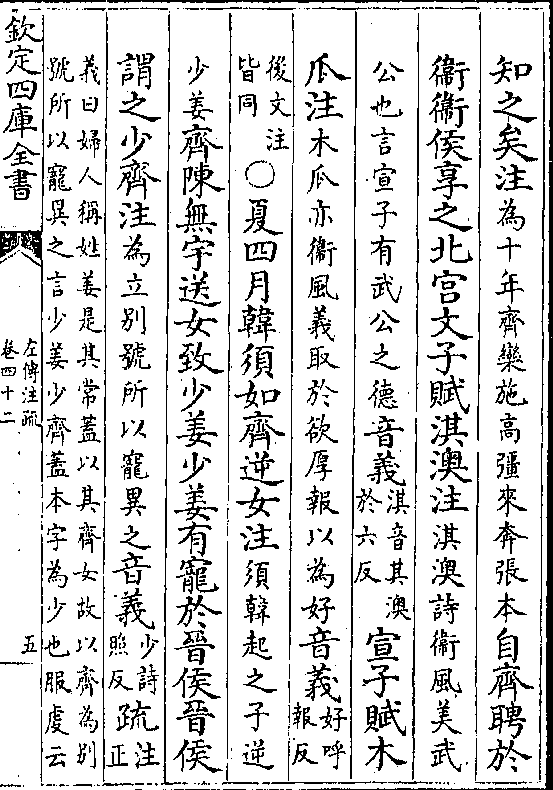 知之矣注為十年齊欒施高彊來奔張本自齊聘於
衞衞侯享之北宫文子賦淇澳注淇澳詩衞風美武
公也言宣子有武公之德音義淇音其澳於六反宣子賦木
瓜注木瓜亦衞風義取於欲厚報以為好音義好呼報反
後文注皆同○夏四月韓須如齊逆女注須韓起之子逆
少姜齊陳無宇送女致少姜少姜有寵於晉侯晉侯
謂之少齊注為立别號所以寵異之音義少詩照反疏注正
義曰婦人稱姓姜是其常蓋以其齊女故以齊為别
號所以寵異之言少姜少齊蓋本字為少也服虔云
欽定四庫全書
左傳注疏
卷四十二
五